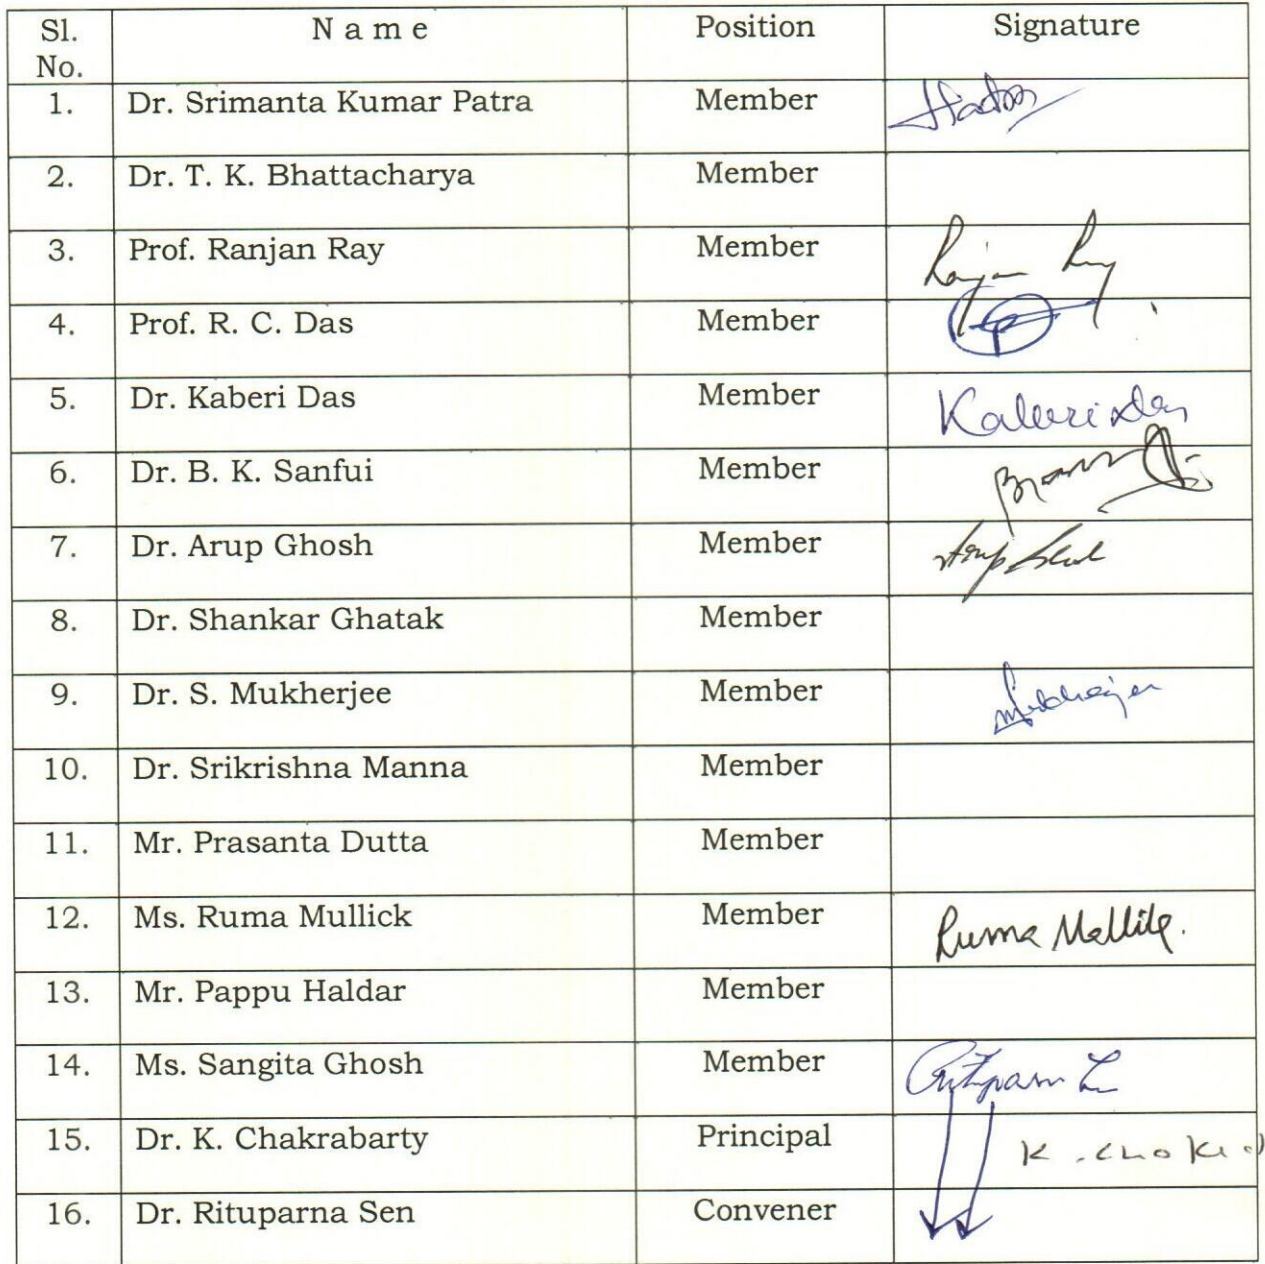 Sl. No. N a m e Position Signature
1. Dr. Srimanta Kumar Patra Member
2. Dr. T. K. Bhattacharya Member
3. Prof. Ranjan Ray Member Ranjan Ray
4. Prof. R. C. Das Member
5. Dr. Kaberi Das Member Kaberi Das
6. Dr. B. K. Sanfui Member
7. Dr. Arup Ghosh Member
8. Dr. Shankar Ghatak Member
9. Dr. S. Mukherjee Member Mukherjee
10. Dr. Srikrishna Manna Member
11. Mr. Prasanta Dutta Member
12. Ms. Ruma Mullick Member Ruma Mallik.
13. Mr. Pappu Haldar Member
14. Ms. Sangita Ghosh Member
15. Dr. K. Chakrabarty Principal
16. Dr. Rituparna Sen Convener